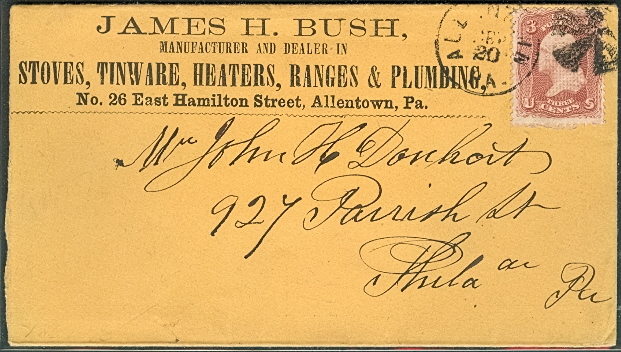 JAMES H. BUSH,
MANUFACTURER AND DEALER IN
STOVES, TINWARE, HEATERS, RANGES & PLUMBING,
No. 26 East Hamilton Street, Allentown, Pa.
20
PA.
3
U THREE CENTS S
Mr John H Donhort
927 Parrish St
Phila
Pa